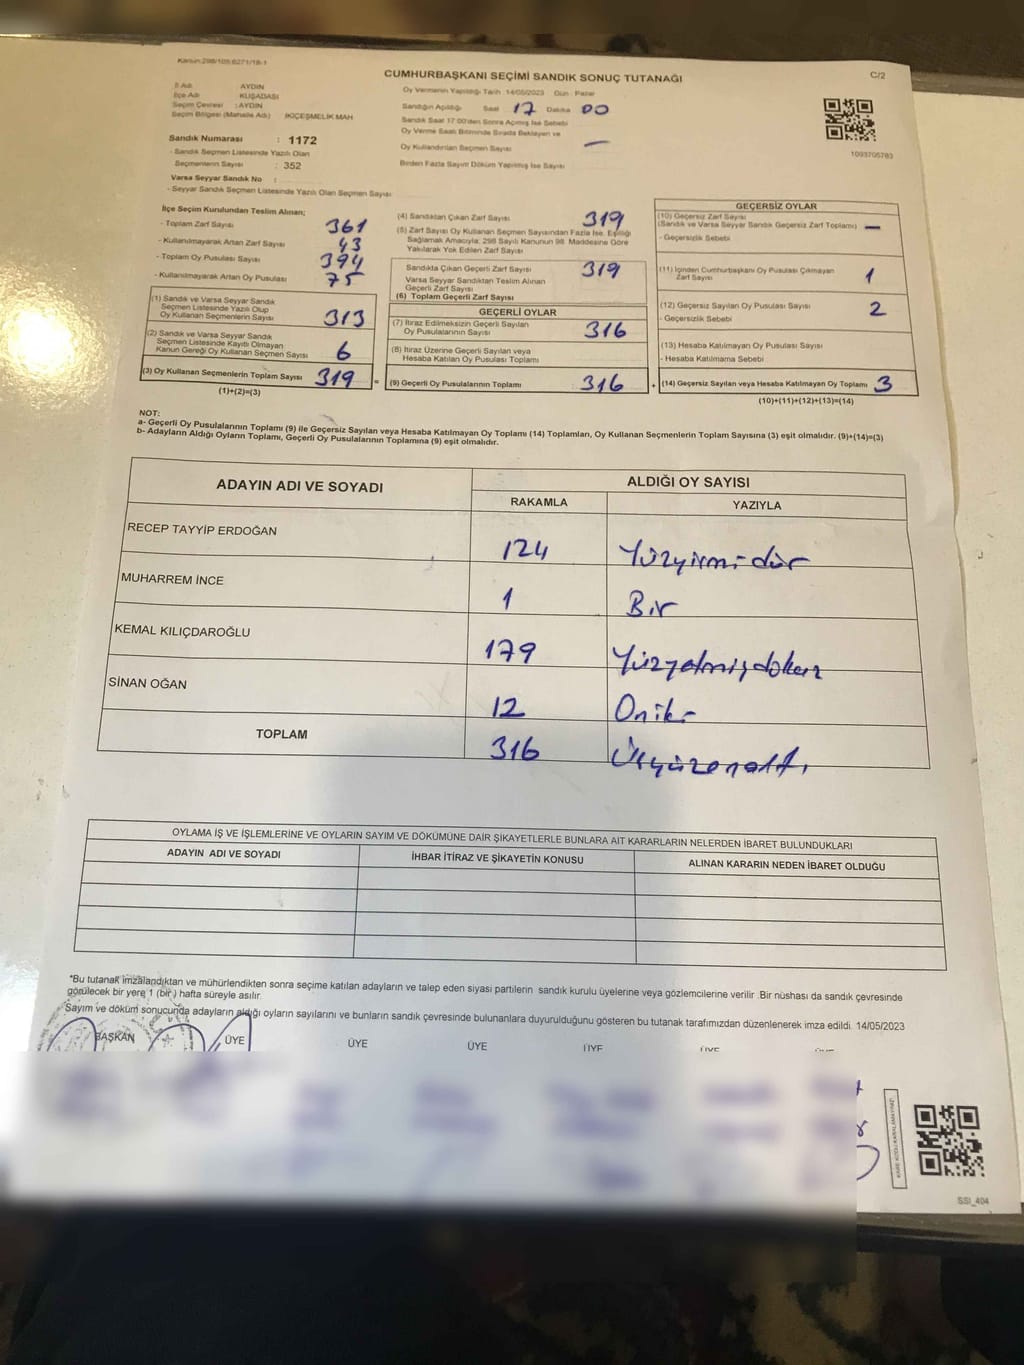 Kanun:298/105;6271/18-1
CUMHURBAŞKANI SEÇİMİ SANDIK SONUÇ TUTANAĞI
C/2
İl Adı AYDIN
İlçe Adı KUŞADASI
Seçim Çevresi : AYDIN
Seçim Bölgesi (Mahalle Adı) İKİÇEŞMELİK MAH
Oy Vermenin Yapıldığı Tarih 14/05/2023 Gün Pazar
Sandığın Açıldığı Saat 17 Dakika 00
Sandık Saat 17:00'den Sonra Açılmış İse Sebebi
Oy Verme Saati Bitiminde Sırada Bekleyen ve
Oy Kullandırılan Seçmen Sayısı —
Birden Fazla Sayım Döküm Yapılmış İse Sayısı
1093705783
Sandık Numarası : 1172
- Sandık Seçmen Listesinde Yazılı Olan
Seçmenlerin Sayısı : 352
Varsa Seyyar Sandık No :
- Seyyar Sandık Seçmen Listesinde Yazılı Olan Seçmen Sayısı
İlçe Seçim Kurulundan Teslim Alınan;
- Toplam Zarf Sayısı 361
- Kullanılmayarak Artan Zarf Sayısı 43
- Toplam Oy Pusulası Sayısı 394
- Kullanılmayarak Artan Oy Pusulası 75
(1) Sandık ve Varsa Seyyar Sandık
Seçmen Listesinde Yazılı Olup
Oy Kullanan Seçmenlerin Sayısı 313
(2) Sandık ve Varsa Seyyar Sandık
Seçmen Listesinde Kayıtlı Olmayan
Kanun Gereği Oy Kullanan Seçmen Sayısı 6
(3) Oy Kullanan Seçmenlerin Toplam Sayısı 319 =
(1)+(2)=(3)
(4) Sandıktan Çıkan Zarf Sayısı 319
(5) Zarf Sayısı Oy Kullanan Seçmen Sayısından Fazla İse, Eşitliği
Sağlamak Amacıyla; 298 Sayılı Kanunun 98. Maddesine Göre
Yakılarak Yok Edilen Zarf Sayısı
Sandıkta Çıkan Geçerli Zarf Sayısı 319
Varsa Seyyar Sandıktan Teslim Alınan
Geçerli Zarf Sayısı
(6) Toplam Geçerli Zarf Sayısı
GEÇERLİ OYLAR
(7) İtiraz Edilmeksizin Geçerli Sayılan
Oy Pusulalarının Sayısı 316
(8) İtiraz Üzerine Geçerli Sayılan veya
Hesaba Katılan Oy Pusulası Toplamı
(9) Geçerli Oy Pusulalarının Toplamı : 316 +
GEÇERSİZ OYLAR
(10) Geçersiz Zarf Sayısı
(Sandık ve Varsa Seyyar Sandık Geçersiz Zarf Toplamı) —
- Geçersizlik Sebebi
(11) İçinden Cumhurbaşkanı Oy Pusulası Çıkmayan
Zarf Sayısı 1
(12) Geçersiz Sayılan Oy Pusulası Sayısı 2
- Geçersizlik Sebebi
(13) Hesaba Katılmayan Oy Pusulası Sayısı
- Hesaba Katılmama Sebebi
(14) Geçersiz Sayılan veya Hesaba Katılmayan Oy Toplamı 3
(10)+(11)+(12)+(13)=(14)
NOT:
a- Geçerli Oy Pusulalarının Toplamı (9) ile Geçersiz Sayılan veya Hesaba Katılmayan Oy Toplamı (14) Toplamları, Oy Kullanan Seçmenlerin Toplam Sayısına (3) eşit olmalıdır. (9)+(14)=(3)
b- Adayların Aldığı Oyların Toplamı, Geçerli Oy Pusulalarının Toplamına (9) eşit olmalıdır.
ADAYIN ADI VE SOYADI
ALDIĞI OY SAYISI
RAKAMLA YAZIYLA
RECEP TAYYİP ERDOĞAN 124 Yüzyirmidör
MUHARREM İNCE 1 Bir
KEMAL KILIÇDAROĞLU 179 Yüzyetmişdokuz
SİNAN OĞAN 12 Oniki
TOPLAM 316 Üçyüzonaltı
OYLAMA İŞ VE İŞLEMLERİNE VE OYLARIN SAYIM VE DÖKÜMÜNE DAİR ŞİKAYETLERLE BUNLARA AİT KARARLARIN NELERDEN İBARET BULUNDUKLARI
ADAYIN ADI VE SOYADI İHBAR İTİRAZ VE ŞİKAYETİN KONUSU ALINAN KARARIN NEDEN İBARET OLDUĞU
*Bu tutanak imzalandıktan ve mühürlendikten sonra seçime katılan adayların ve talep eden siyasi partilerin sandık kurulu üyelerine veya gözlemcilerine verilir .Bir nüshası da sandık çevresinde
görülecek bir yere 1 (bir ) hafta süreyle asılır.
Sayım ve döküm sonucunda adayların aldığı oyların sayılarını ve bunların sandık çevresinde bulunanlara duyurulduğunu gösteren bu tutanak tarafımızdan düzenlenerek imza edildi. 14/05/2023
BAŞKAN ÜYE ÜYE ÜYE ÜYE ÜYE
SSI_404